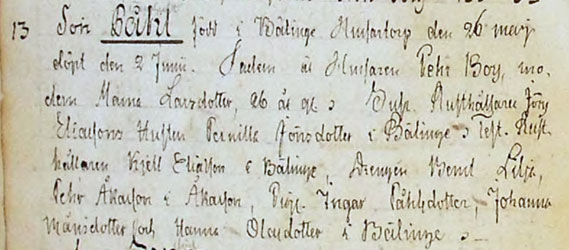 13 Son Påhl född i Bälinge Husartorp den 26 maij
döpt den 2 Junii. Fadern är Husaren Pehr Boy, mo-
dern Marna Larsdotter, 26 år gl. Susc. Rusthållaren Jöns
Eliasons Hustru Pernilla Jönsdotter i Bälinge. Test. Rust-
hållaren Kjell Eliasson i Bälinge, Drengen Bernt Lilja,
Pehr Åkasson i Åkarson, Pig. Ingar Påhlsdotter, Johanna
Månsdotter och Hanna Olasdotter i Bälinge.